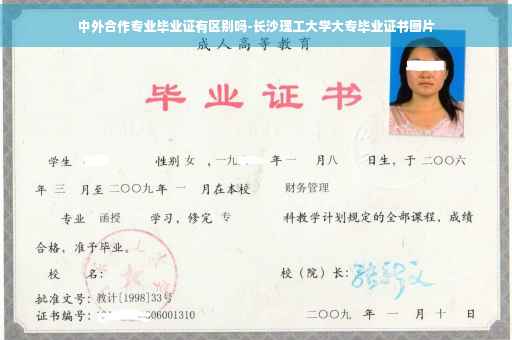 中外合作专业毕业证有区别吗-长沙理工大学大专毕业证书图片
成人高等教育
毕业证书
学生 性别 女 ,一九 年 一 月八 日生，于 二〇〇六
年 三 月至 二〇〇九 年 一 月在本校 财务管理
专业 函授 学习，修完 专 科教学计划规定的全部课程，成绩
合格，准予毕业。
校 名： 校（院）长：
批准文号：教计[1998]33号
证书编号： 06001310 二〇〇九 年 一 月 十 日